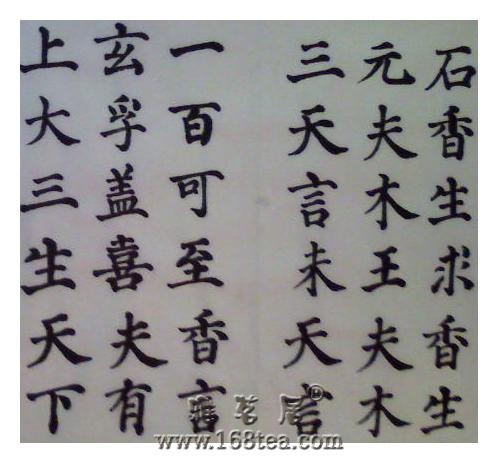 石香生求香生
元夫木王夫木
三天言未天言
一百可至香言
玄孚盖喜夫有
上大三生天下
雅茗居®
www.168tea.com